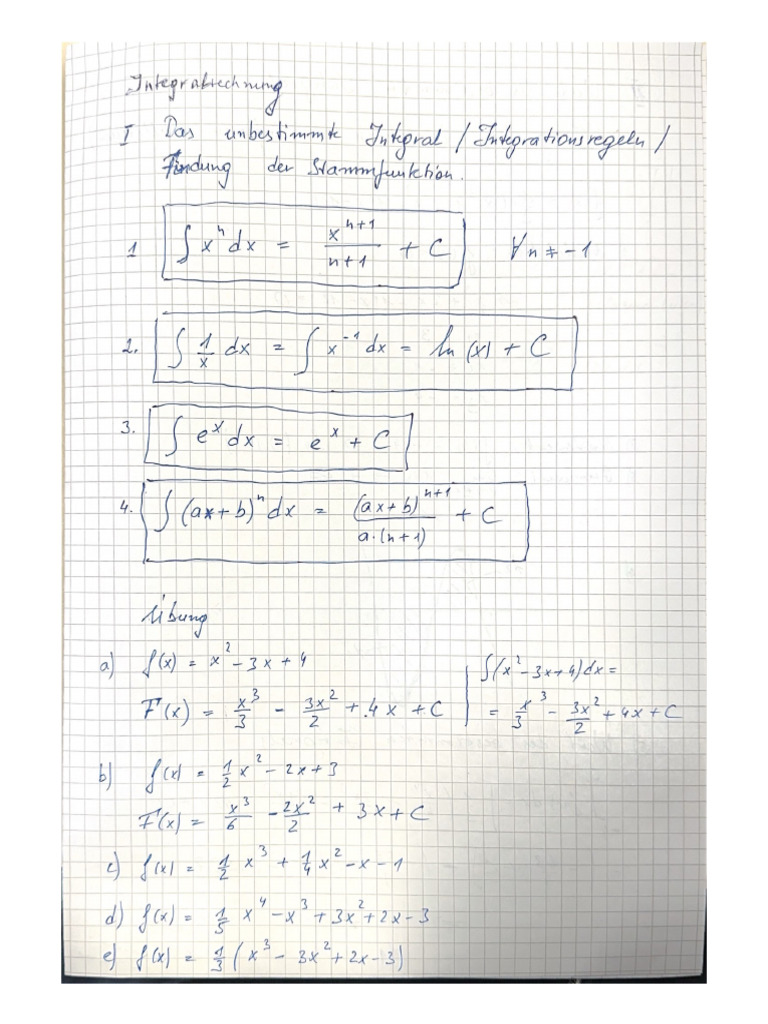 Integralrechnung
I Das unbestimmte Integral / Integrationsregeln /
Findung der Stammfunktion.
1 ∫ xⁿ dx = xⁿ⁺¹/(n+1) + C ∀ n ≠ -1
2. ∫ 1/x dx = ∫ x⁻¹ dx = ln(x) + C
3. ∫ eˣ dx = eˣ + C
4. ∫ (ax+b)ⁿ dx = (ax+b)ⁿ⁺¹/(a·(n+1)) + C
Übung
a) f(x) = x² - 3x + 4
F(x) = x³/3 - 3x²/2 + 4x + C
∫(x² - 3x + 4)dx =
= x³/3 - 3x²/2 + 4x + C
b) f(x) = 1/2 x² - 2x + 3
F(x) = x³/6 - 2x²/2 + 3x + C
c) f(x) = 1/2 x³ + 1/4 x² - x - 1
d) f(x) = 1/5 x⁴ - x³ + 3x² + 2x - 3
e) f(x) = 1/3 (x³ - 3x² + 2x - 3)